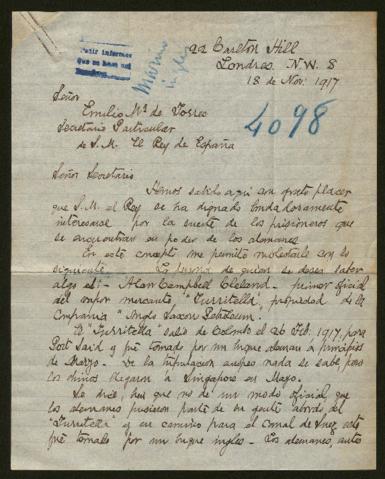 22 Carlton Hill
Londres. N.W. 8
18 de Nov. 1917
Pedir informes
que se hace mal
Marino
inglés
4098
Señor
Emilio Mª de Torres
Secretario Particular
de S.M. El Rey de España
Señor Secretario
Hemos sabido aquí con grato placer
que S.M. el Rey se ha dignado bondadosamente
interesarse por la suerte de los prisioneros que
se encuentran en poder de los alemanes.
En este concepto me permito molestarle con lo
siguiente. La persona de quien se desea saber
algo es:- Alan Campbell Cleland - primer oficial
del vapor mercante, "Turritella", propiedad de la
Compañía "Anglo Saxon Petroleum".
El "Turritella" salió de Colombo el 26 Feb. 1917, para
Port Said y fué tomado por un buque aleman a principios
de Marzo. De la tripulacion europea nada se sabe, pero
los chinos llegaron a Singapore en Mayo.
Se dice, bien que no de un modo oficial, que
los alemanes pusieron parte de su gente abordo del
"Turritella" y en camino para el Canal de Suez este
fué tomado por un buque ingles. Los alemanes, antes